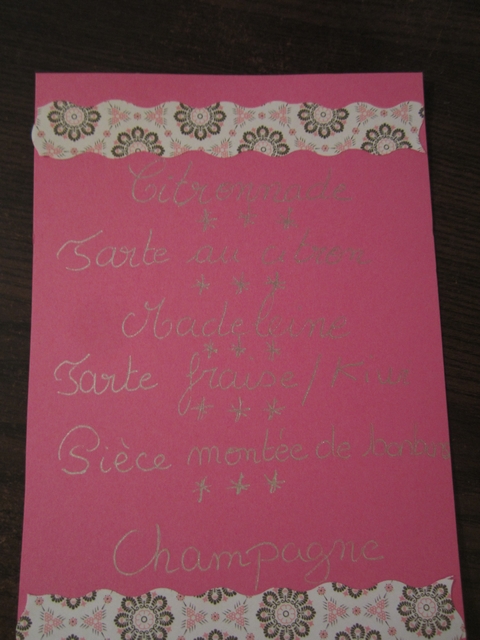 Citronnade
* * *
Tarte au citron
* * *
Madeleine
* * *
Tarte fraise/Kiwi
* * *
Pièce montée de bonbons
* * *
Champagne